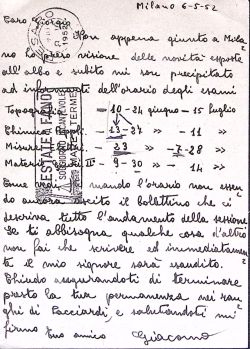 Milano 6-5-52
Caro Giorgio
Non appena giunto a Mila-
no ho preso visione delle novità esposte
all'albo e subito mi son precipitato
ad informarti dell'orario degli esami
Topogr — 10 - 24 giugno - 15 luglio
Chimica Appli 13 - 27 » - 11 »
Misure 23 » - 7 - 28 »
Materi III° - 9 - 30 » - 14 »
mando l'orario non essen
do ancora uscito il bolettino che ci
descriva tutto l'andamento della sessione
Se ti abbisogna qualche cosa d'altro
non fai che scrivere ed immediatamen
te il mio signore sarà esaudito.
Chiudo augurandoti di terminare
presto la tua permanenza nei ran
ghi di Pacciardi, e salutandoti mi
firmo tuo amico Giacomo
ESTATE A FANO
SOGGIORNO INCANTEVOLE
MARE TERME
1952